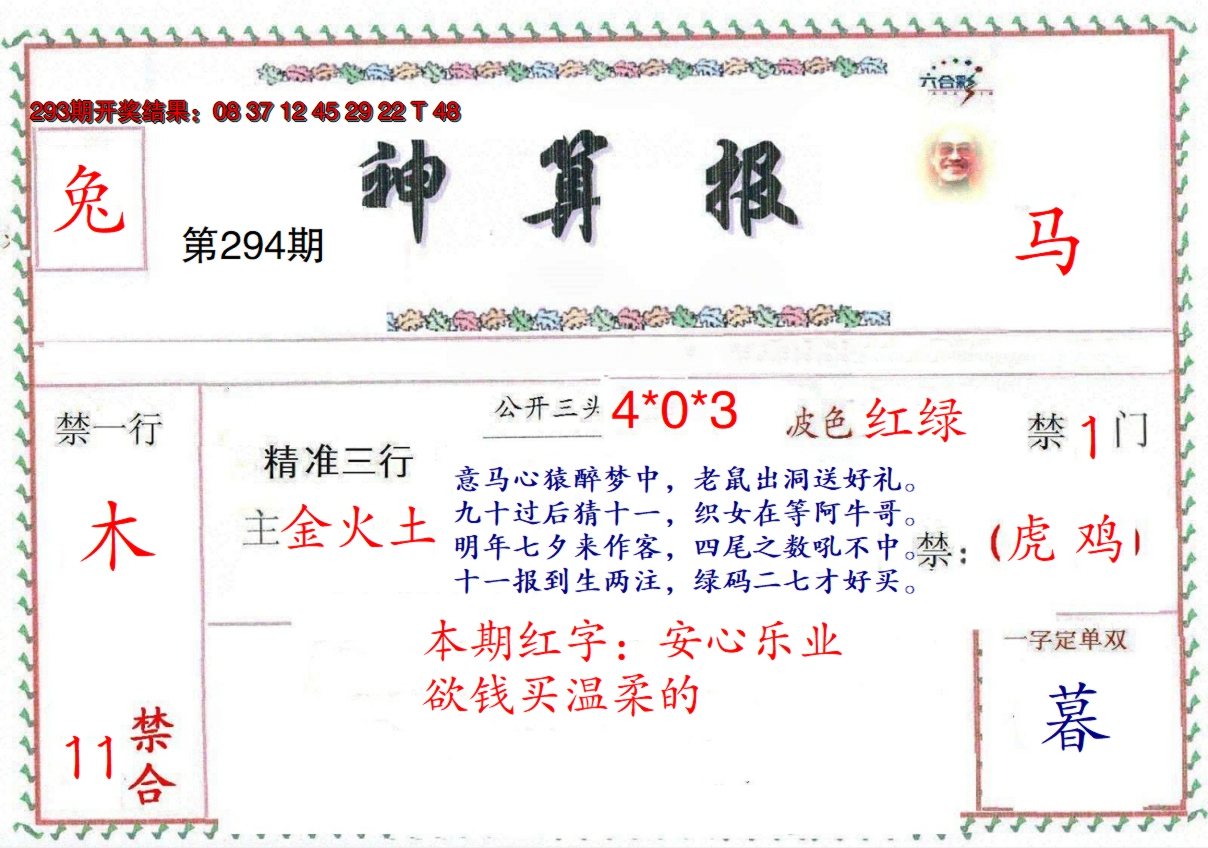 六合彩
293期开奖结果：08 37 12 45 29 22 T 48
兔
神算报
第294期
马
禁一行
木
11禁合
精准三行
主金火土
公开三头 4*0*3
波色红绿
意马心猿醉梦中，老鼠出洞送好礼。
九十过后猜十一，织女在等阿牛哥。
明年七夕来作客，四尾之数吼不中。
十一报到生两注，绿码二七才好买。
禁1门
禁：（虎 鸡）
本期红字：安心乐业
欲钱买温柔的
一字定单双
暮